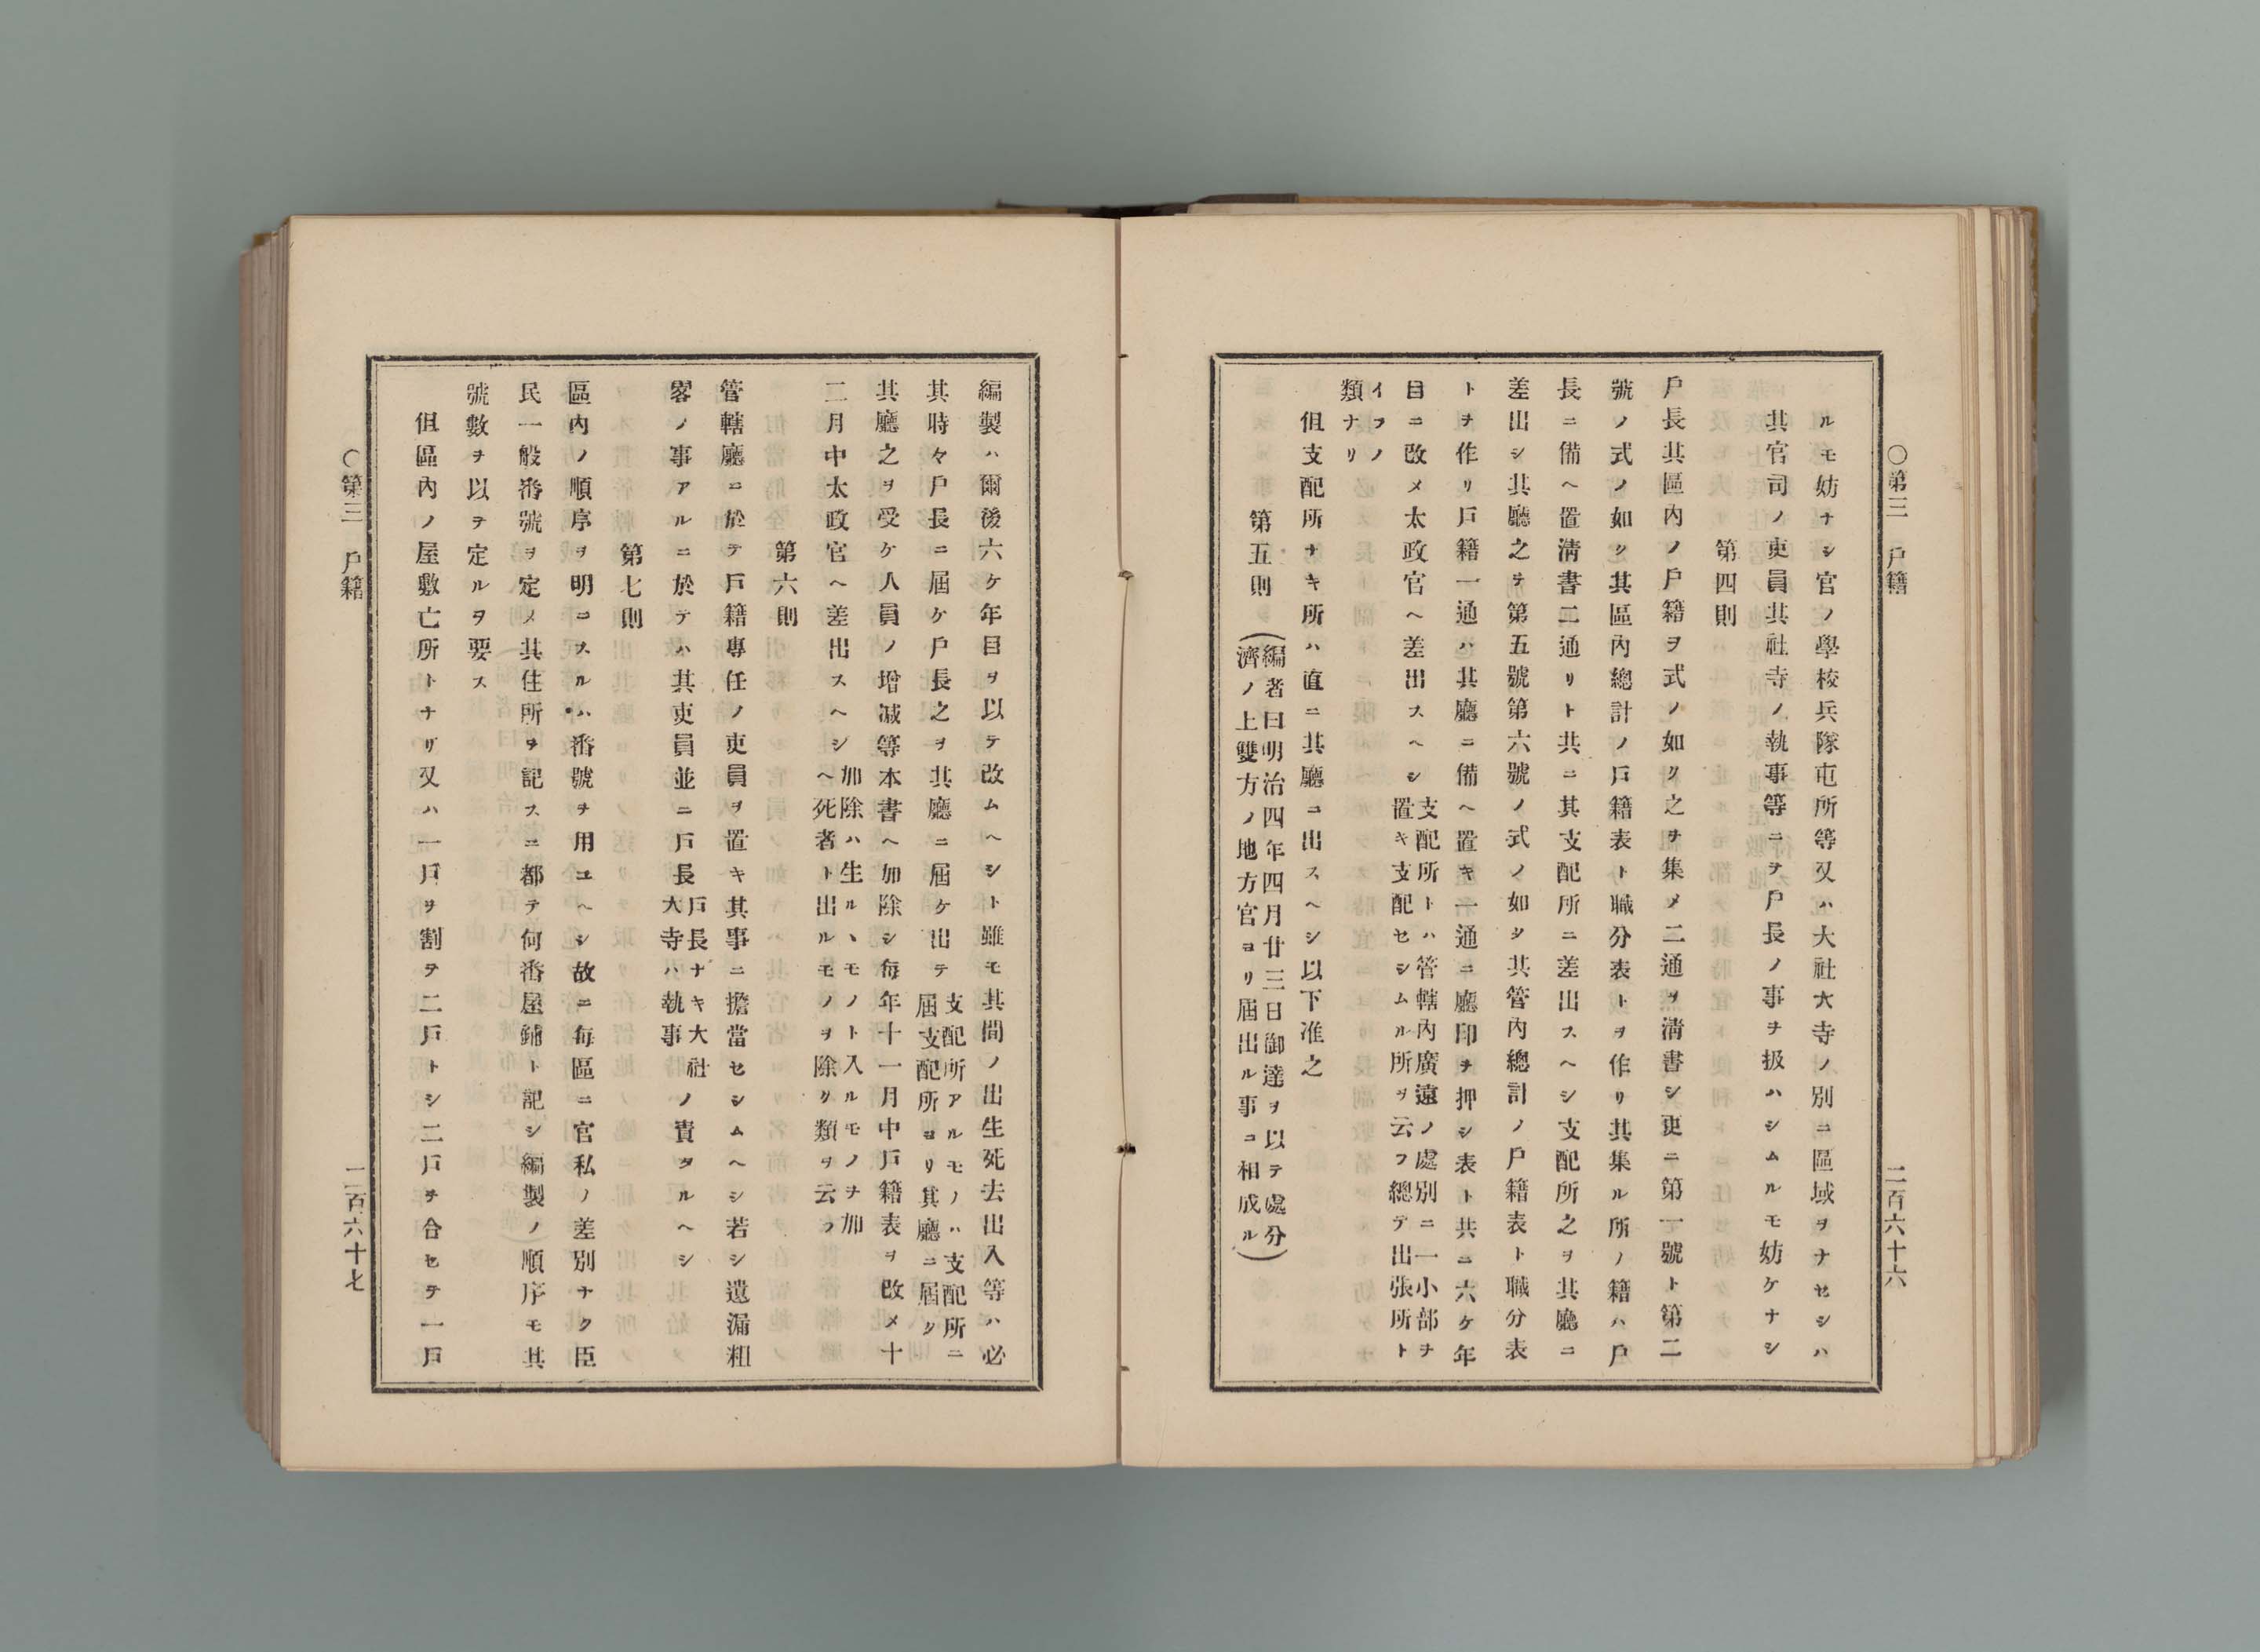 ○第三 戶籍 二百六十六
ルモ妨ナシ官ノ學校兵隊屯所等又ハ大社大寺ノ別ニ區域ヲナセシハ
其官司ノ吏員其社寺ノ執事等ニヲ戶長ノ事ヲ扱ハシムルモ妨ケナシ
第四則
戶長其區內ノ戶籍ヲ式ノ如ク之ヲ集メ二通ヲ淸書シ更ニ第一號ト第二
號ノ式ノ如ク其區內總計ノ戶籍表ト職分表トヲ作リ其集ル所ノ籍ハ戶
長ニ備ヘ置淸書二通リト共ニ其支配所ニ差出スヘシ支配所之ヲ其廳ニ
差出シ其廳之ヲ第五號第六號ノ式ノ如ク其管內總計ノ戶籍表ト職分表
トヲ作リ戶籍一通ハ其廳ニ備ヘ置キ一通ニ廳印ヲ押シ表ト共ニ六ケ年
目ニ改メ太政官ヘ差出スヘシ
支配所トハ管轄內廣遠ノ處別ニ一小部ヲ
置キ支配セシムル所ヲ云フ總テ出張所ト
イフノ
類ナリ
但支配所ナキ所ハ直ニ其廳ニ出スヘシ以下准之
第五則
(編者曰明治四年四月廿三日御達ヲ以テ處分
濟ノ上雙方ノ地方官ヨリ屆出ル事ニ相成ル)
編製ハ爾後六ケ年目ヲ以テ改ムヘシト雖モ其間ノ出生死去出入等ハ必
其時々戶長ニ屆ケ戶長之ヲ其廳ニ屆ケ出テ
支配所アルモノハ支配所ニ
屆支配所ヨリ其廳ニ屆ク
其廳之ヲ受ケ人員ノ增减等本書ヘ加除シ每年十一月中戶籍表ヲ改メ十
二月中太政官ヘ差出スヘシ
加除ハ生ルヽモノト入ルモノヲ加
ヘ死者ト出ルモノヲ除ク類ヲ云フ
第六則
管轄廳ニ於テ戶籍專任ノ吏員ヲ置キ其事ニ擔當セシムヘシ若シ遺漏粗
畧ノ事アルニ於テハ其吏員並ニ戶長
戶長ナキ大社
大寺ハ執事
ノ責タルヘシ
第七則
區內ノ順序ヲ明ニスルハ番號ヲ用ユヘシ故ニ每區ニ官私ノ差別ナク臣
民一般番號ヲ定メ其住所ヲ記スニ都テ何番屋鋪ト記シ編製ノ順序モ其
號數ヲ以テ定ルヲ要ス
但區內ノ屋敷亡所トナリ又ハ一戶ヲ割テ二戶トシ二戶ヲ合セテ一戶
○第三 戶籍 二百六十七